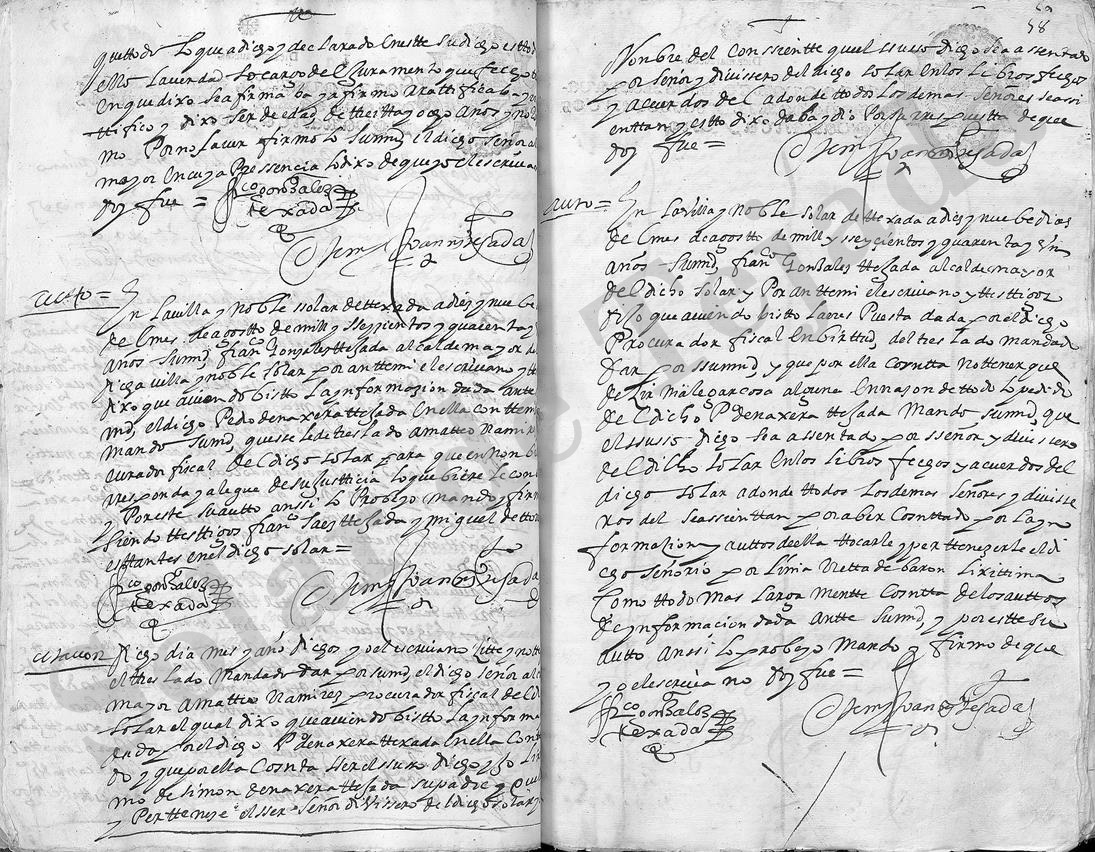 quttods Lo que a dicgo y declarado En estte su dicgo es tto d
ello La verdad so cargo del Juramento que fecgo
En que dixo se afirmaba y afirmo Ratificaba y ra
ttifico y dixo ser de edad de treitta y ocgo Años y no fir
mo Por no saver firmolo su md el dicgo señor al
mayor En cuya Pressencia lo dixo de que yo el escrivano
doy fee =
fco gonzalez
texada
Juan Texada
autto =
En La villa y noble solar de texada a dies y nuebe
del mes de agostto de mill y sseyçientos y quarenta y
años = su md franco Gonzales ttejada alcalde mayor de
dicga villa y noble solar por antte mi el escrivano y tte
dixo que aviendo bistto La ynformazion dada ante
md, el dicgo Po de naxera ttexada En ella contteni
mando su md, que sse le de treslado a matteo Ramire
curador fiscal del dicgo solar para que en nonbre
rresponda y alegue de su justticia lo que biere le con
y Por este su autto anssi lo Probeyo mando y firm
siendo testtigos franco saez ttexada y miguel de tto
estantes en el dicgo solar =
fco gonzalez
texada
Juan Texada
citacion
dicgo dia mes y año dicgos yo el escrivano Ley y not
el treslado Mandado dar por su md el dicgo señor al
mayor A matteo Ramirez procurador fiscal del di
solar el qual dixo que aviendo bistto La ynforma
en da por el dicgo Po de naxera ttexada En ella Cont
do y que por ella Constta sser el suso dicgo yjo Lex
mo de simon de naxera ttexada su padre y que
y Pertteneze el sser señor dibissero del dicgo solar y
58
Nonbre del Conssiente que el ssuso dicgo sea assentado
por señor y divissero del dicgo solar En los Libros fecgos
y acuerdos del adonde ttodos Los demas señores se assi
enttan y estto dixo daba y dio Por su rrespuestta de que
doy fee =
Juan Texada
autto =
En La villa y Noble solar de texada a dies y nuebe dias
del mes de agostto de mill y sseyçientos y quarenta y Un
años = su md, franco Gonzales ttexada alcalde mayor
del dicgo solar y Por antte mi el escrivano y testtigos
dixo que aviendo bistto La respuesta dada por el dicgo
Procurador fiscal En birttud, del treslado mandado
dar por ssu md y que por ella Constta No ttener que
dezir mi alegar cosa alguna En rrazon de tto do Lo pedido
del dicho Po de naxera ttexada Mando, su md que
el ssusso dicgo sea assentado por sseñor y divissero
del dicho solar En los libros fecgos y acuerdos del
dicgo solar adonde ttodos Los demas señores y divisse
ros del se assienttan por aber Consttado por La yn
formasion y auttos de ella ttocarle y perttenezerle el di
cgo señorio por linia Recta de baron Lixittima
Como ttodo mas Larga mentte Constta de los auttos
de ynformacion dada antte su md y por estte su
autto Anssi lo probeyo Mando y firmo de que
yo el escrivano doy fee =
fco gonzalez
texada
Juan Texada
Solar de Tejada